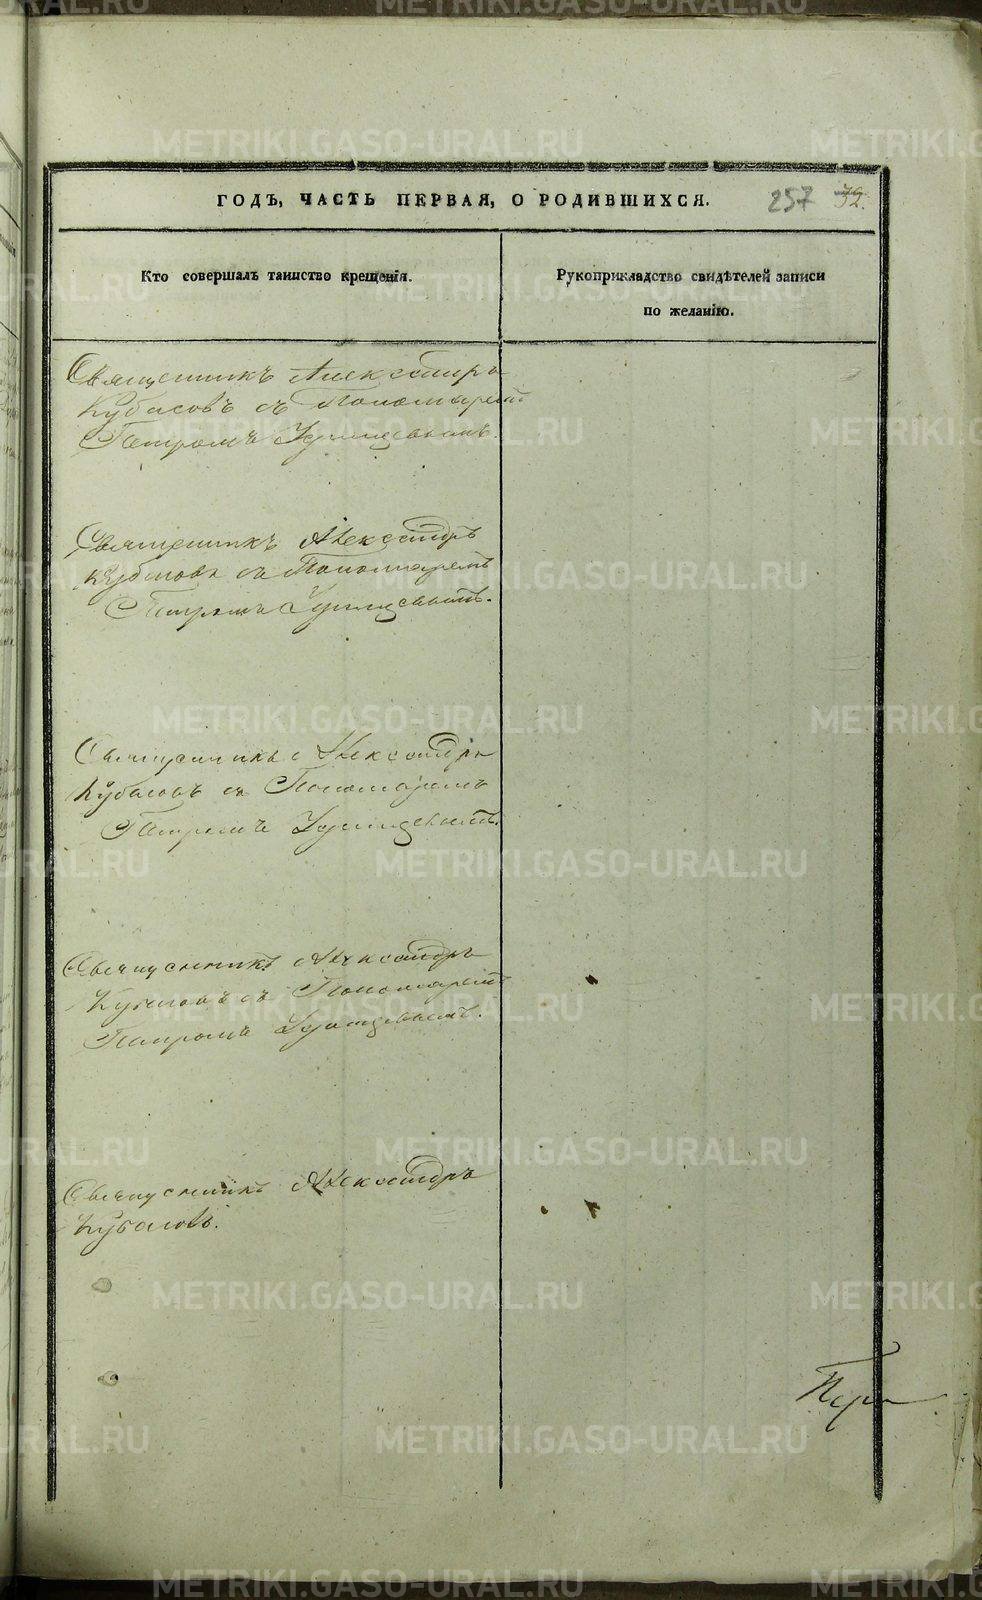 ГОДЪ, ЧАСТЬ ПЕРВАЯ, О РОДИВШИХСЯ. 257 72.
Кто совершалъ таинство крещенія.
Рукоприкладство свидѣтелей записи
по желанію.
Священникъ Александръ
Кубасовъ съ Пономаремъ
Петромъ
Священникъ Александръ
Кубасовъ съ Пономаремъ
Петромъ
Священникъ Александръ
Кубасовъ съ Пономаремъ
Петромъ
Священникъ Александръ
Кубасовъ съ Пономаремъ
Петромъ
Священникъ Александръ
Кубасовъ.
METRIKI.GASO-URAL.RU